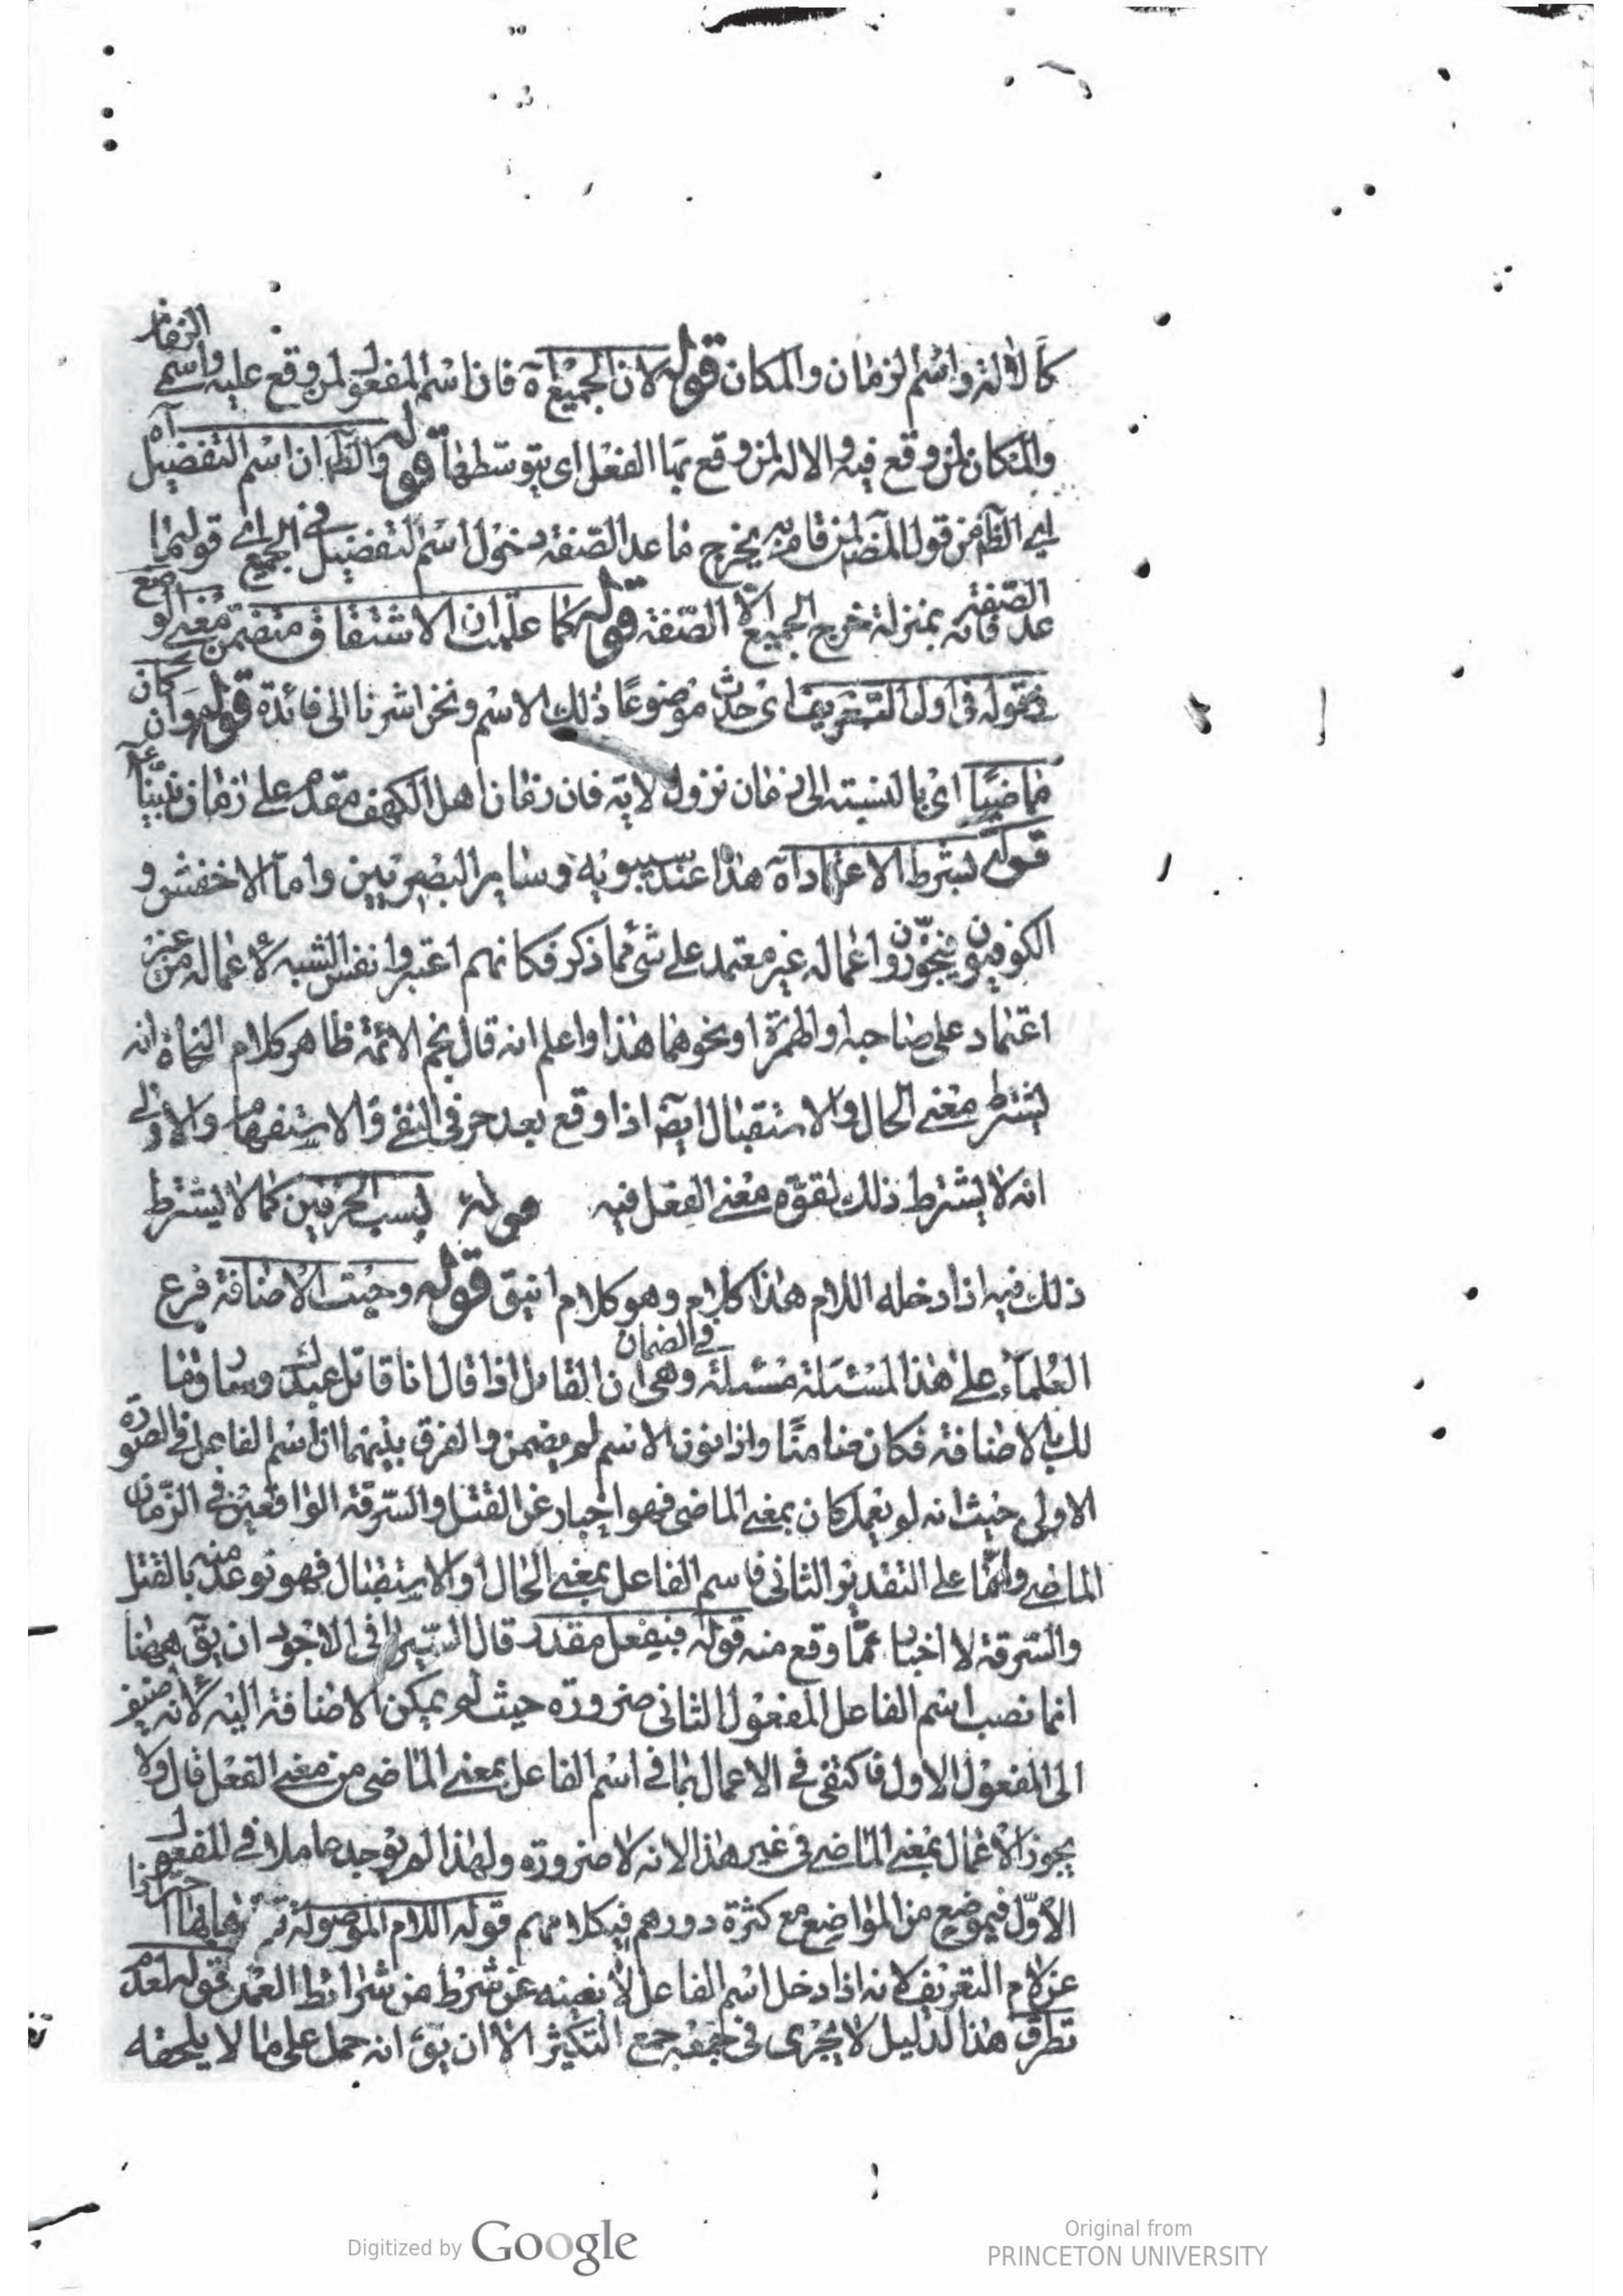 كالآلة واسم الزمان والمكان قوله لان الجميع اه فان اسم المفعول لمن وقع عليه واسم الزمان
والمكان لمن وقع فيه والاله لمن وقع بها الفعل اى بتوسطها قوله والظ ان اسم التفضيل اه
اى الظ من قول المص لمن قام به يخرج ما عدا الصفة دخول اسم التفضيل فى الجميع اى قوله ما
عدا الصفة فانه بمنزلة خرج الجميع الّا الصّفة قوله كما علمت ان الاشتقاق متضمن معنى الوضع
فقوله فى اول التعريف اى حدث موضوعًا ذلك الاسم ونحن اشرنا الى فائدة قوله وان كان
ماضيًا اى بالنسبته الى زمان نزول الاية فان زمان اهل الكهف مقدم على زمان نبيّنا عم
قوله بشرط الاعتماد اه هذا عند سيبويه وسائر البصريين وامّا الاخفش و
الكوفيون فيجوّزون اعماله غير معتمد على شئ مما ذكر فكانهم اعتبروا نفس الشبه لاعماله من غير
اعتماد على صاحبه والهمزة او نحوهما هذا واعلم انه قال نجم الائمة ظاهر كلام النحاة انه
يشترط معنى الحال والاستقبال ايضا اذا وقع بعد حرفى النفى والاستفهام والاولى
انه لا يشترط ذلك لقوّة معنى الفعل فيه قوله بسبب الحرفين كما لا يشترط
ذلك فيه اذا دخله اللام هذا كلامه وهو كلام انيق قوله وجبت الاضافة فرع
العلماء على هذا المسئلة مسئلة فى الضمان وهى ان القائل اذا قال انا قاتل عبدك وسارق مالك
بالاضافة فكان ضامنًا واذا نون الاسم لم يضمن والفرق بينهما ان اسم الفاعل فى الصورة
الاولى حيث انه لو يعمل كان بمعنى الماضى فهو اخبار عن القتل والسّرقة الواقعين فى الزّمان
الماضى وامّا على التقدير الثانى فاسم الفاعل بمعنى الحال او الاستقبال فهو توعد منه بالقتل
والسّرقة لا اخبار عمّا وقع منه قوله فبفعل مقدر قال السّيرافى الاجود ان يق ههنا
انما نصب اسم الفاعل المفعول الثانى ضرورة حيث لم يمكن الاضافة اليه لانه اضيف
الى المفعول الاول فاكتفى فى الاعمال بما فى اسم الفاعل بمعنى الماضى من معنى الفعل قال ولا
يجوز الاعمال بمعنى الماضى فى غير هذا لانه لا ضرورة ولهذا لم يوجد عاملا فى المفعول
الاوّل فى موضع من المواضع مع كثرة دوره فى كلامهم قوله اللام الموصولة احترازا
عن لام التعريف لانه اذا دخل اسم الفاعل لا يغنيه عن شرط من شرائط العمل قوله لعدم
تطرق هذا الدليل لا يجرى فى جمعه جمع التكثير الا ان يق انه حمل على ما لا يلحقه
Digitized by Google
Original from
PRINCETON UNIVERSITY